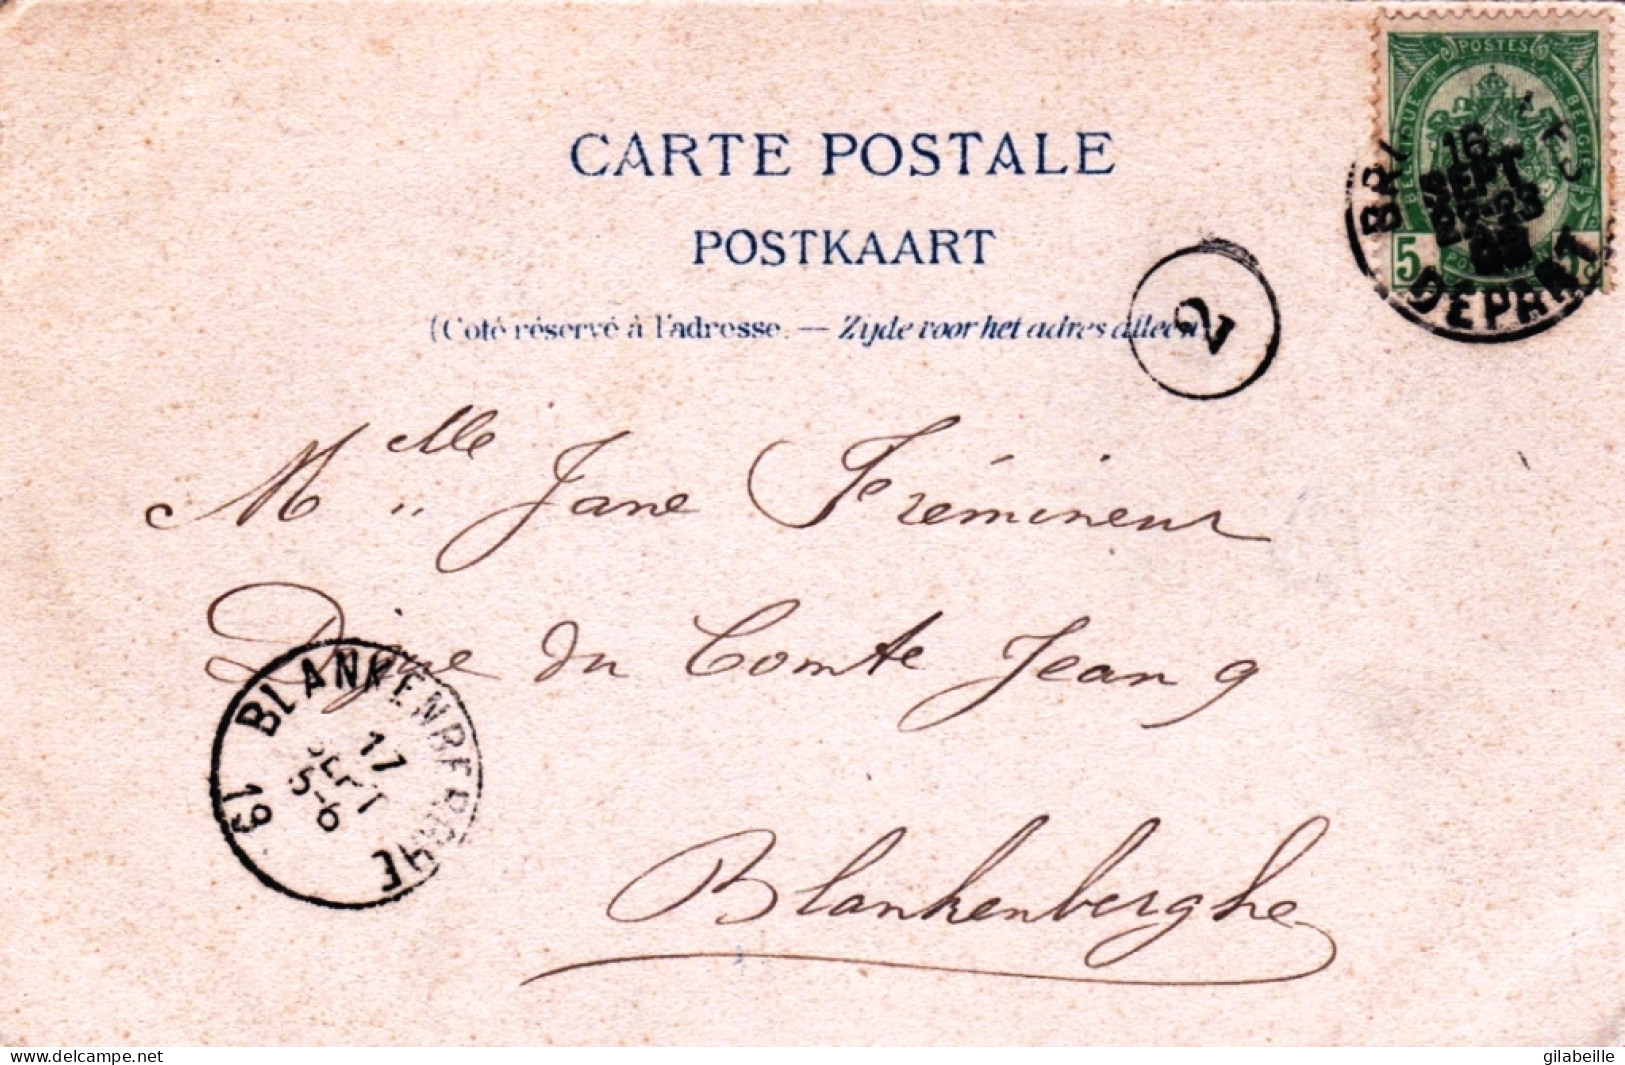 CARTE POSTALE
POSTKAART
(Coté réservé à l'adresse. — Zijde voor het adres alleen)
POSTES
BELGIQUE BELGIË
5 5
16
SEPT
22-23
DEPART
2
Mlle Jane Frémineur
Digue du Comte Jean 9
Blankenberghe
BLANKENBERGHE
17
SEPT
5-6
19
delcampe.net
gilabeille